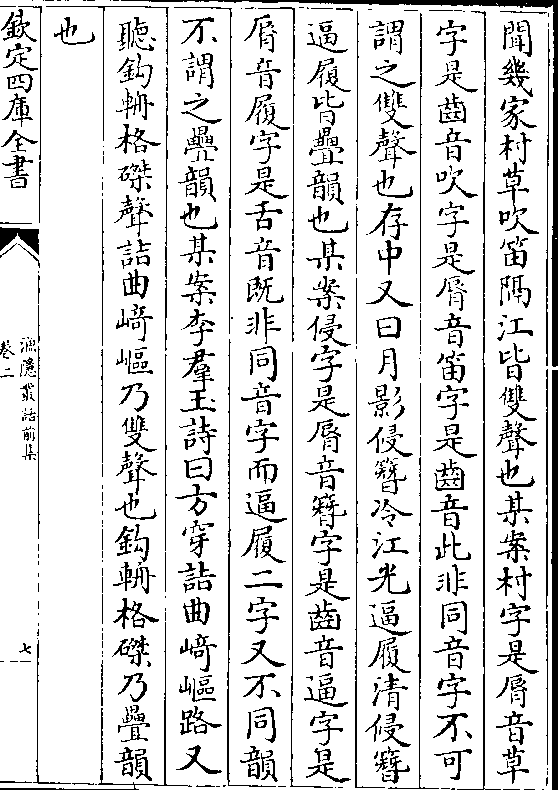 聞幾家村草吹笛隔江皆雙聲也某案村字是脣音草
字是齒音吹字是脣音笛字是齒音此非同音字不可
謂之雙聲也存中又曰月影侵簪冷江光逼履清侵簪
逼履皆疊韻也某案侵字是脣音簪字是齒音逼字是
脣音履字是舌音既非同音字而逼履二字又不同韻
不謂之疊韻也某案李羣玉詩曰方穿詰曲崎嶇路又
聽鈎輈格磔聲詰曲崎嶇乃雙聲也鈎輈格磔乃疊韻
也
欽定四庫全書
漁隱叢話前集
卷二
七